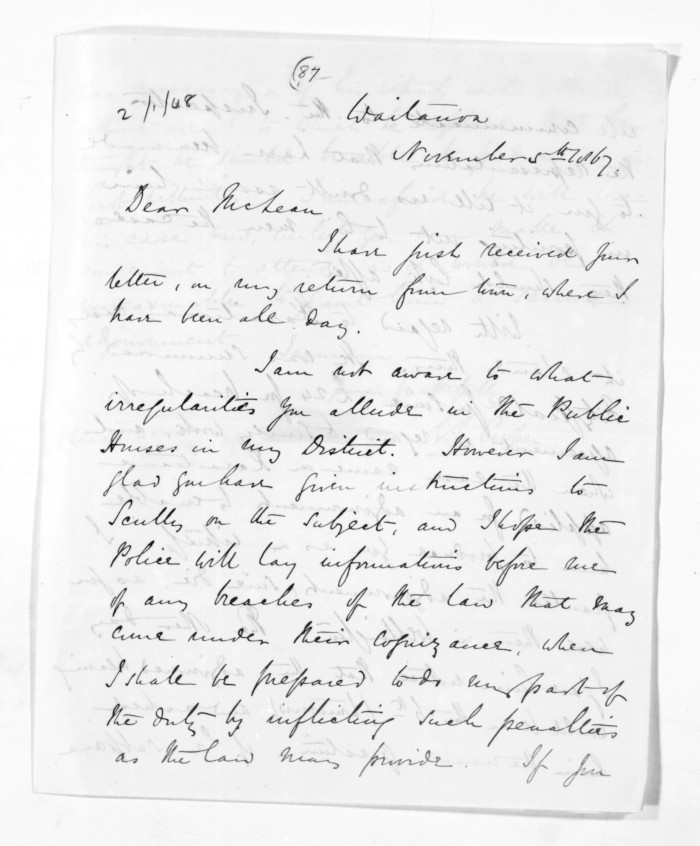 (87
2/1/48
Waitanoa
November 5th 1867.
Dear McLean
I have just received your
letter, on my return from town, where I
have been all day.
I am not aware to what
irregularities you allude in the Public
Houses in my District. However I am
glad you have given instructions to
Scully on the subject, and I hope the
Police will lay informations before me
of any breaches of the law that may
come under their cognizance, when
I shall be prepared to do my part of
the duty by inflicting such penalties
as the law may provide. If you